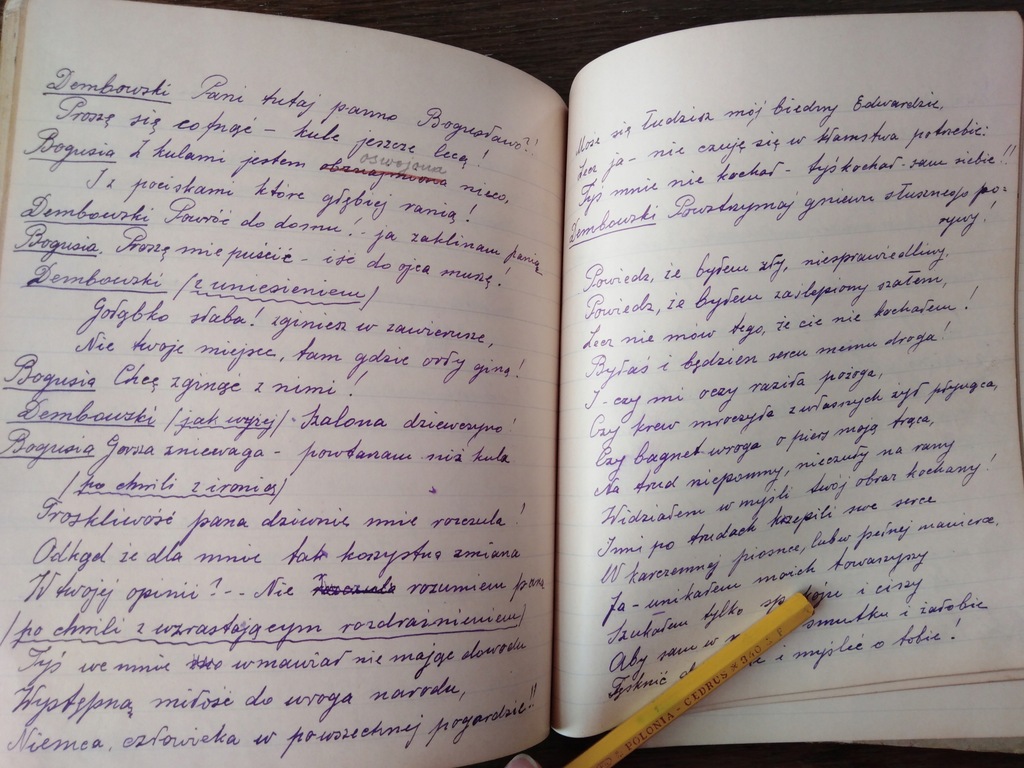 Dembowski Pani tutaj panno Bogusławo?!
Proszę się cofnąć - kule jeszcze lecą!
oswojona
Bogusia Z kulami jestem obznajmiona nieco,
I z pociskami które głębiej ranią!
Dembowski Powróć do domu! - ja zaklinam panią
Bogusia. Proszę mię puścić - iść do ojca muszę!
Dembowski (z uniesieniem)
Gołąbko słaba! zginiesz w zawierusze,
Nie twoje miejsce, tam gdzie orły giną!
Bogusia Chcę zginąć z nimi!
Dembowski (jak wyżej) - Szalona dziewczyno!
Bogusia Gorsza zniewaga - powtarzam niż kula
(po chwili z ironią)
Troskliwość pana dziwnie mnie rozczula!
Odkąd że dla mnie tak korzystna zmiana
W twojej opinii? - - Nie rozczula rozumiem pana
(po chwili z wzrastającym rozdrażnieniem)
Tyś we mnie wmawiał nie mając dowodu
Występną miłość do wroga narodu,
Niemca, człowieka w powszechnej pogardzie!!
Może się łudzisz mój biedny Edwardzie,
Lecz ja - nie czuję się w kłamstwa potrzebie:
Tyś mnie nie kochał - tyś kochał - sam siebie!!
Dembowski Powstrzymaj gniewu słusznego po-
rywy!
Powiedz, że byłem zły, niesprawiedliwy,
Powiedz, że byłem zaślepiony szałem,
Lecz nie mów tego, że cię nie kochałem!
Byłaś i będziesz sercu memu droga!
I - czy mi oczy raziła pożoga,
Czy krew mroczyła z własnych żył płynąca,
Czy bagnet wroga o pierś moją trąca,
Na trud niepomny, nieczuły na rany
Widziałem w myśli twój obraz kochany!
Inni po trudach krzepili swe serce
W karczemnej piosnce, lub w pełnej manierce,
Ja - unikałem moich towarzyszy
Szukałem tylko spokoju i ciszy
Aby sam w smutku i żałobie
Tęsknić i myśleć o tobie!
POLONIA - CEDRUS ★ 940 - F